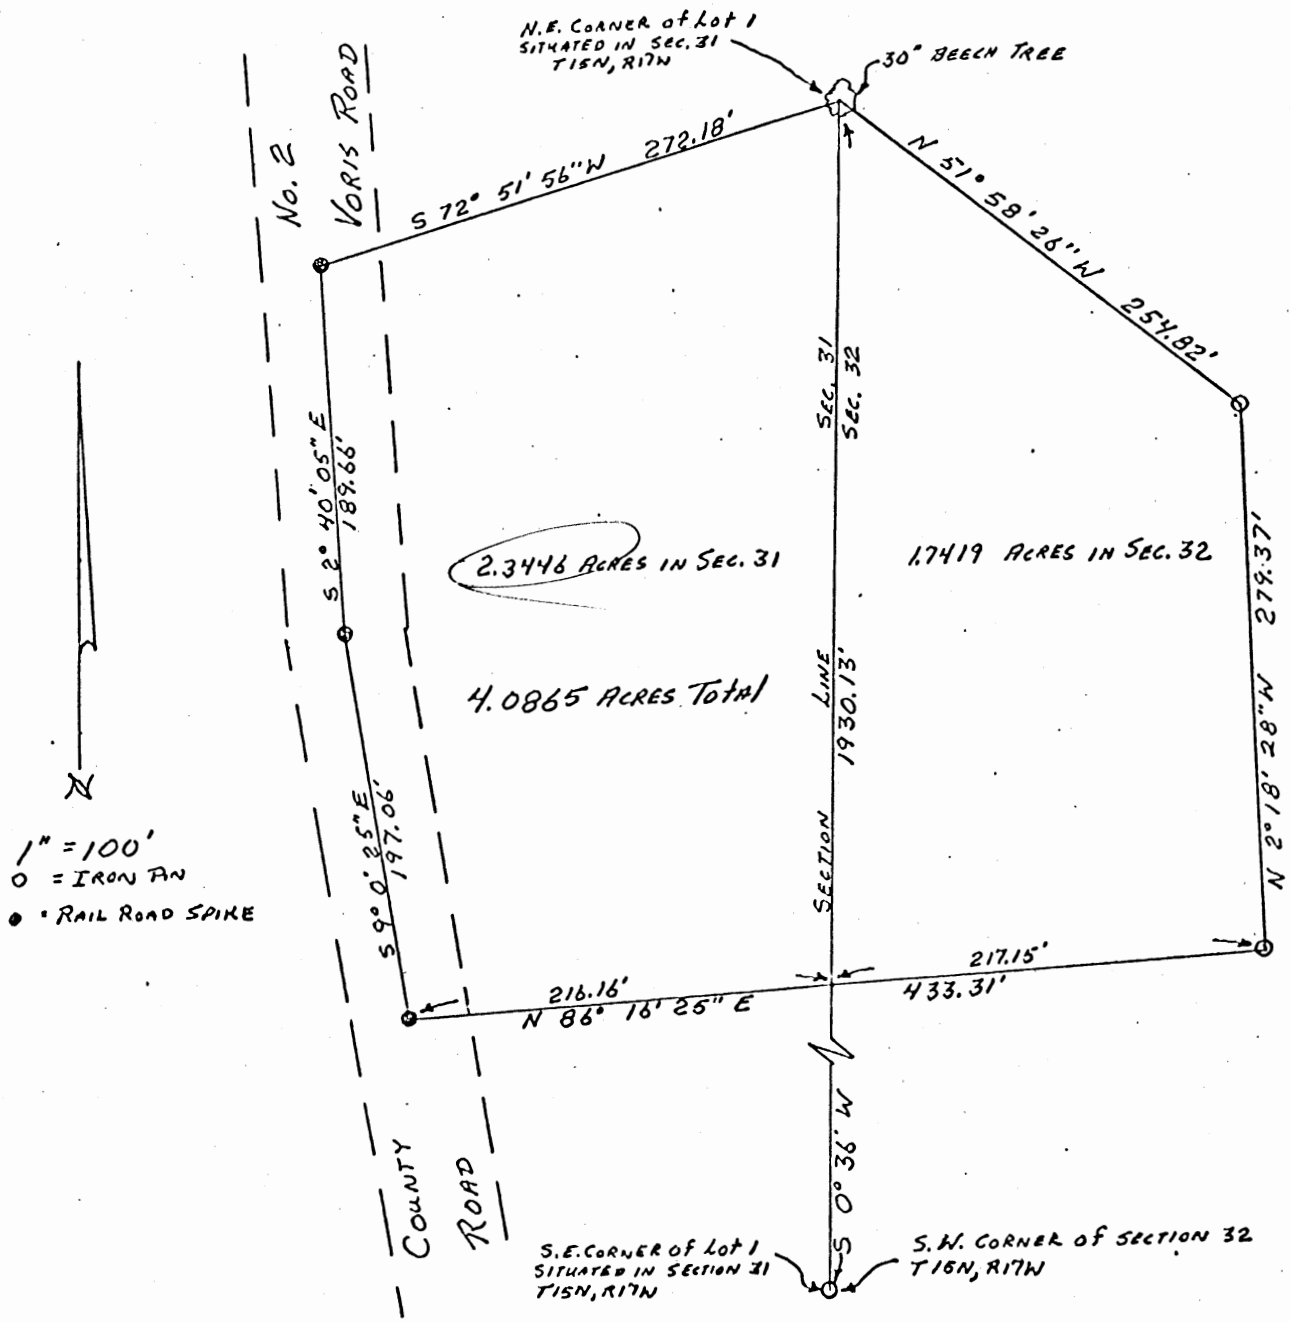 N.E. CORNER of Lot 1
SITUATED IN SEC. 31
T15N, R17W
30" BEECH TREE
No. 2
VORIS ROAD
S 72° 51' 56" W 272.18'
N 51° 58' 26" W 254.82'
SEC. 31
SEC. 32
S 2° 40' 05" E
189.66'
2.3446 ACRES IN SEC. 31
1.7419 ACRES IN SEC. 32
N 2° 18' 28" W 279.37'
4.0865 ACRES TOTAL
SECTION LINE
1930.13'
N
1" = 100'
O = IRON PIN
= RAIL ROAD SPIKE
S 9° 0' 25" E
197.06'
216.16'
N 86° 16' 25" E
217.15'
433.31'
S 0° 36' W
COUNTY
ROAD
S.E. CORNER of Lot 1
SITUATED IN SECTION 31
T15N, R17W
S.W. CORNER of SECTION 32
T15N, R17W